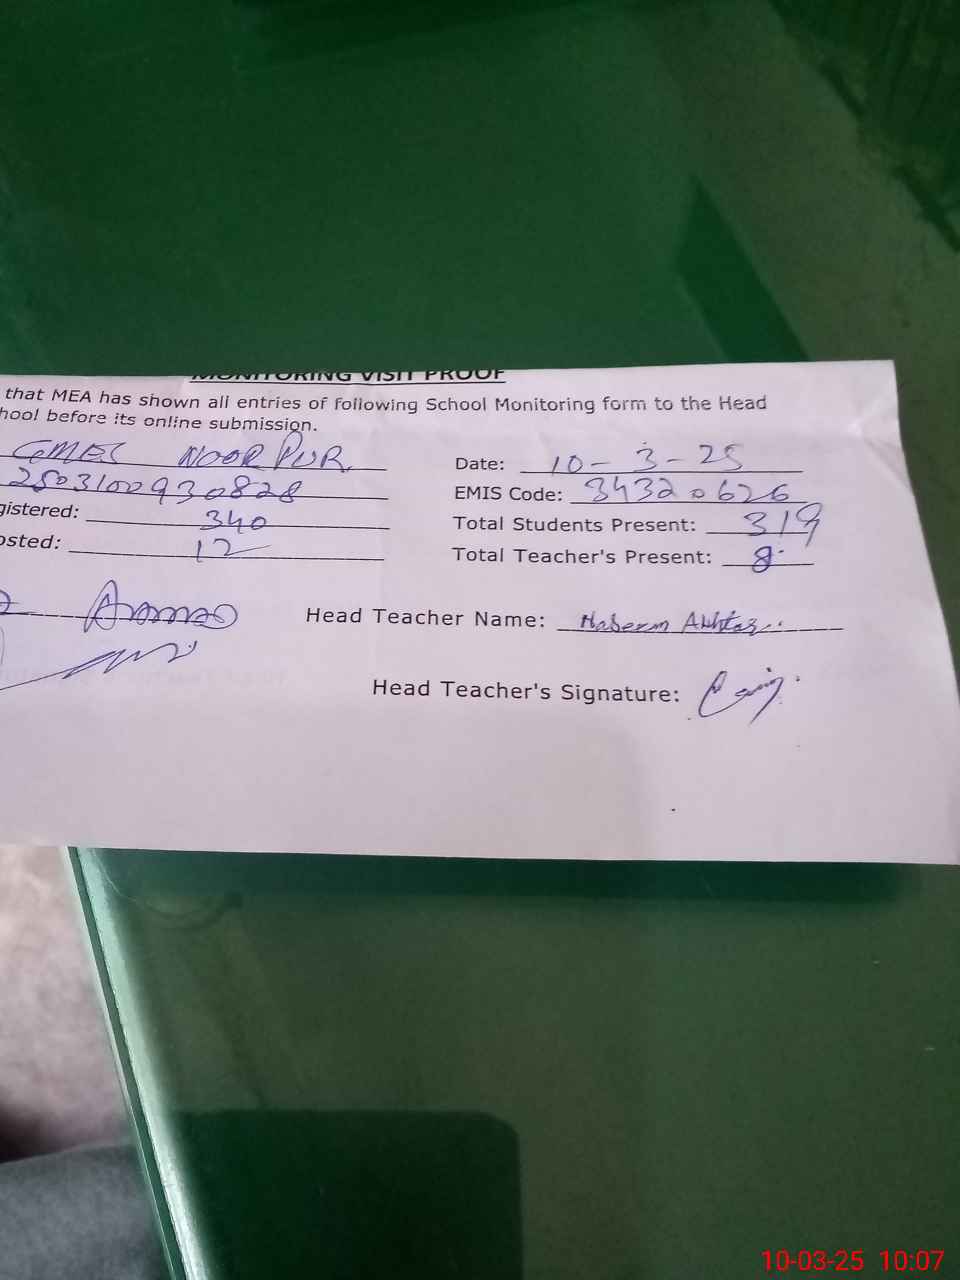 MONITORING VISIT PROOF
that MEA has shown all entries of following School Monitoring form to the Head
hool before its online submission.
GMES NOOR PUR. Date: 10-3-25
2503100930828 EMIS Code: 34320626
gistered: 340 Total Students Present: 319
osted: 12 Total Teacher's Present: 8
Head Teacher Name: Akhtar
Head Teacher's Signature:
10-03-25 10:07